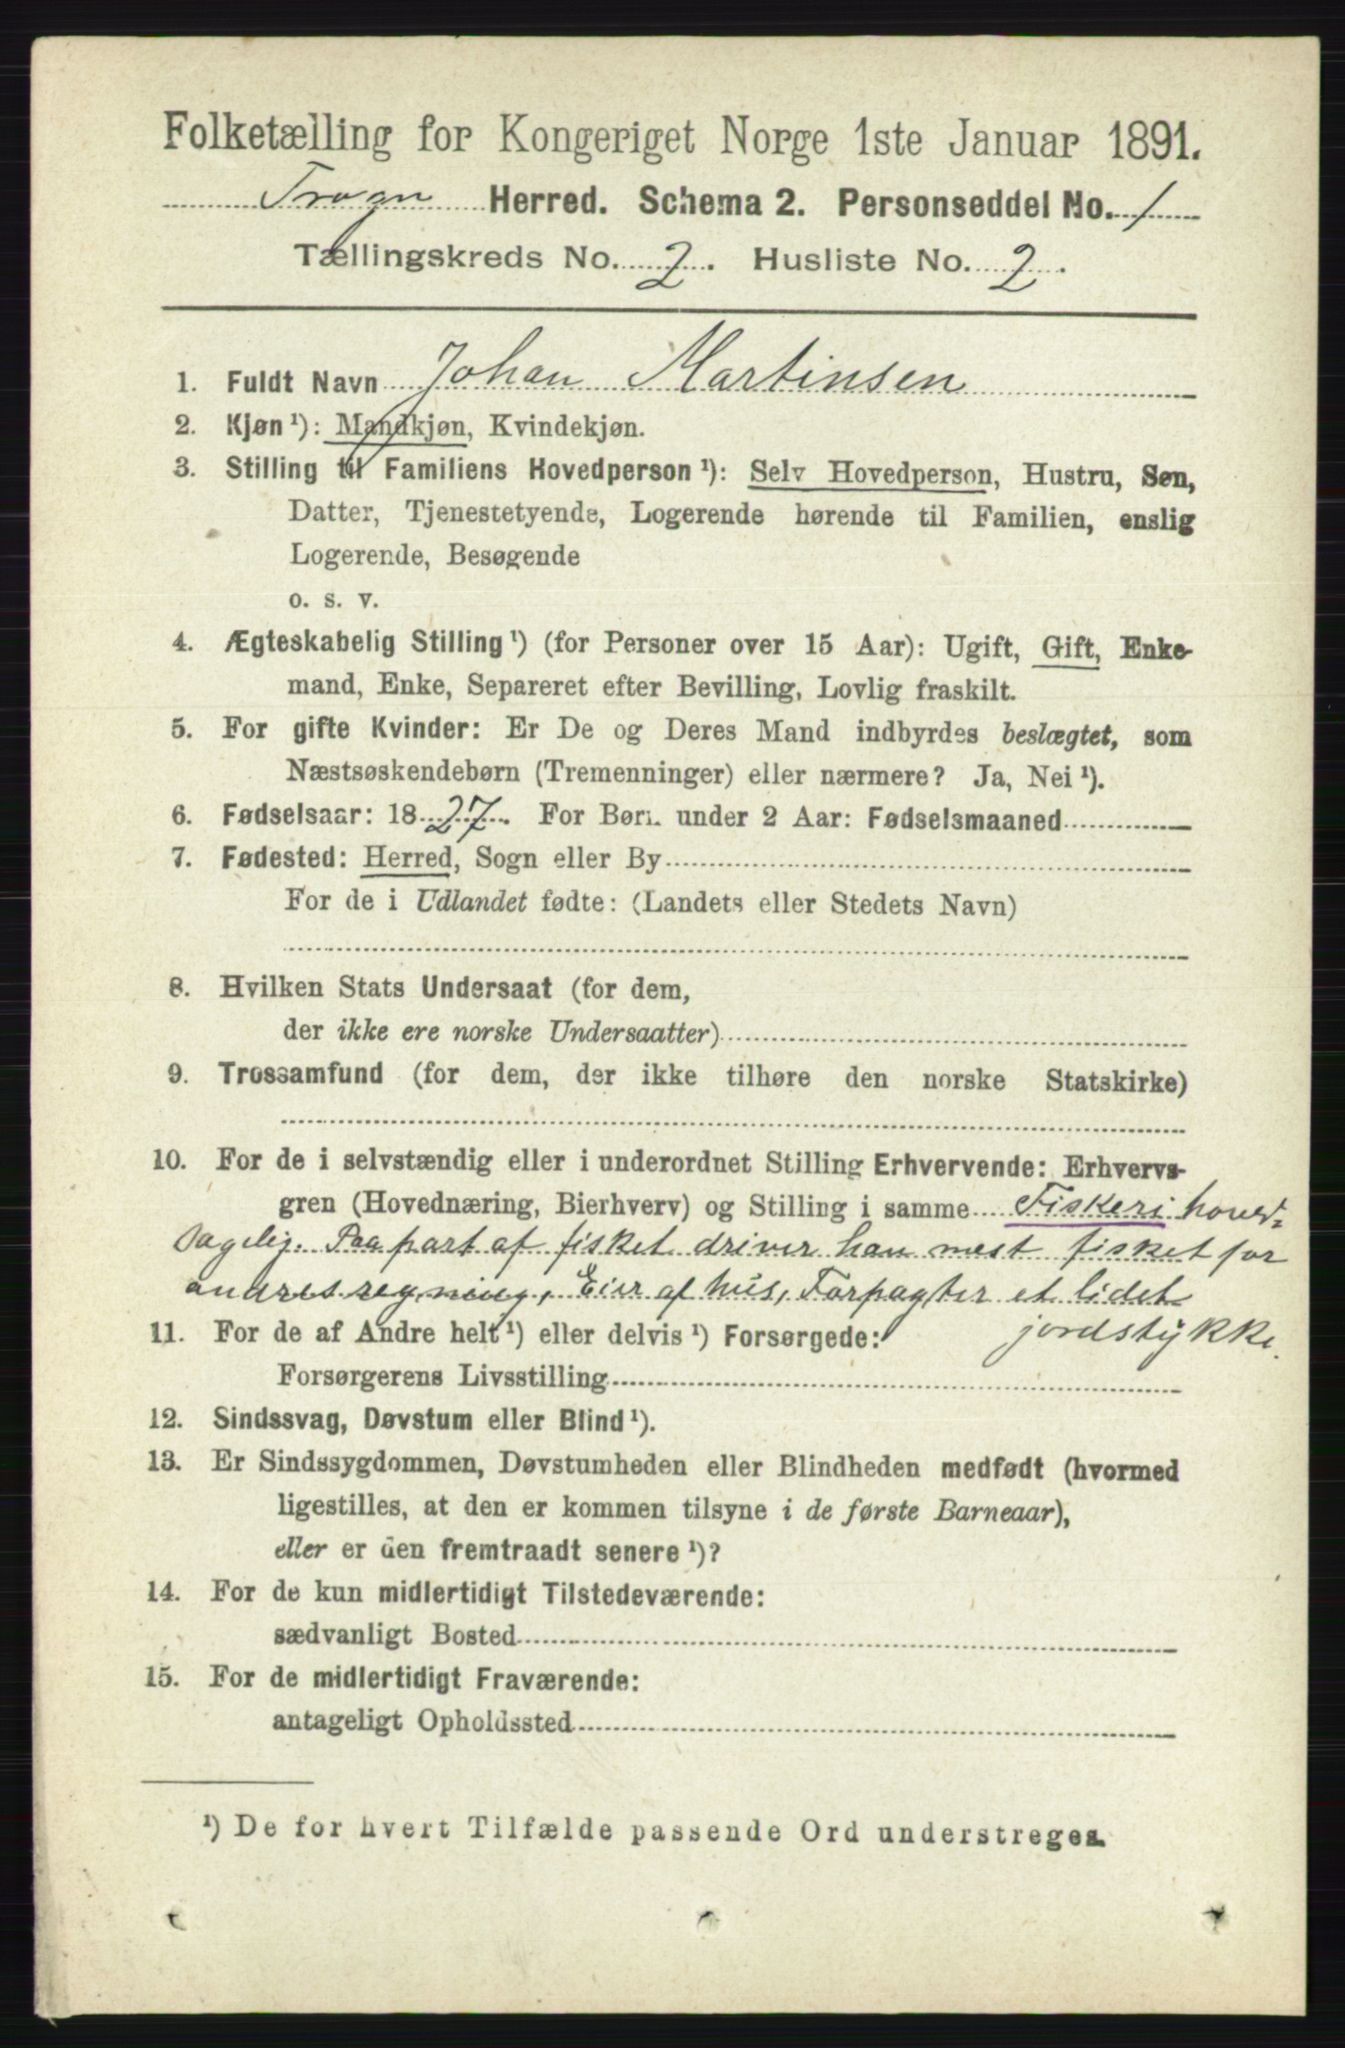 Folketælling for Kongeriget Norge 1ste Januar 1891.
Trogn Herred. Schema 2. Personseddel No. 1
Tællingskreds No. 2. Husliste No. 2.
1. Fuldt Navn Johan Martinsen
2. Kjøn ¹): Mandkjøn, Kvindekjøn.
3. Stilling til Familiens Hovedperson ¹): Selv Hovedperson, Hustru, Søn,
Datter, Tjenestetyende, Logerende hørende til Familien, enslig
Logerende, Besøgende
o. s. v.
4. Ægteskabelig Stilling ¹) (for Personer over 15 Aar): Ugift, Gift, Enke-
mand, Enke, Separeret efter Bevilling, Lovlig fraskilt.
5. For gifte Kvinder: Er De og Deres Mand indbyrdes beslægtet, som
Næstsøskendebørn (Tremenninger) eller nærmere? Ja, Nei ¹).
6. Fødselsaar: 1827. For Børn under 2 Aar: Fødselsmaaned
7. Fødested: Herred, Sogn eller By
For de i Udlandet fødte: (Landets eller Stedets Navn)
8. Hvilken Stats Undersaat (for dem,
der ikke ere norske Undersaatter)
9. Trossamfund (for dem, der ikke tilhøre den norske Statskirke)
10. For de i selvstændig eller i underordnet Stilling Erhvervende: Erhvervs-
gren (Hovednæring, Bierhverv) og Stilling i samme Fiskeri hoved-
sagelig. Paa part af fisket driver han mest fisket for
andres regning, Eier af hus, Forpagter et lidet
jordstykke.
11. For de af Andre helt ¹) eller delvis ¹) Forsørgede:
Forsørgerens Livsstilling
12. Sindssvag, Døvstum eller Blind ¹).
13. Er Sindssygdommen, Døvstumheden eller Blindheden medfødt (hvormed
ligestilles, at den er kommen tilsyne i de første Barneaar),
eller er den fremtraadt senere ¹)?
14. For de kun midlertidigt Tilstedeværende:
sædvanligt Bosted
15. For de midlertidigt Fraværende:
antageligt Opholdssted
¹) De for hvert Tilfælde passende Ord understreges.